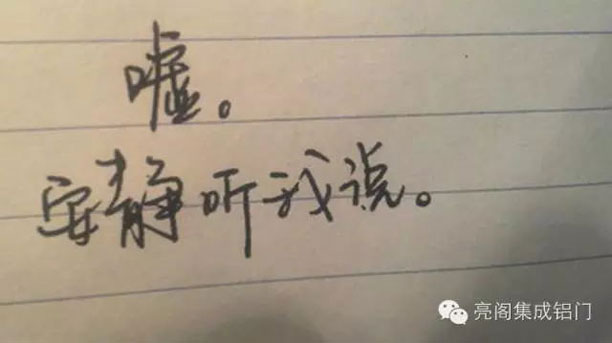 嘘。
安静听我说。
亮阁集成铝门